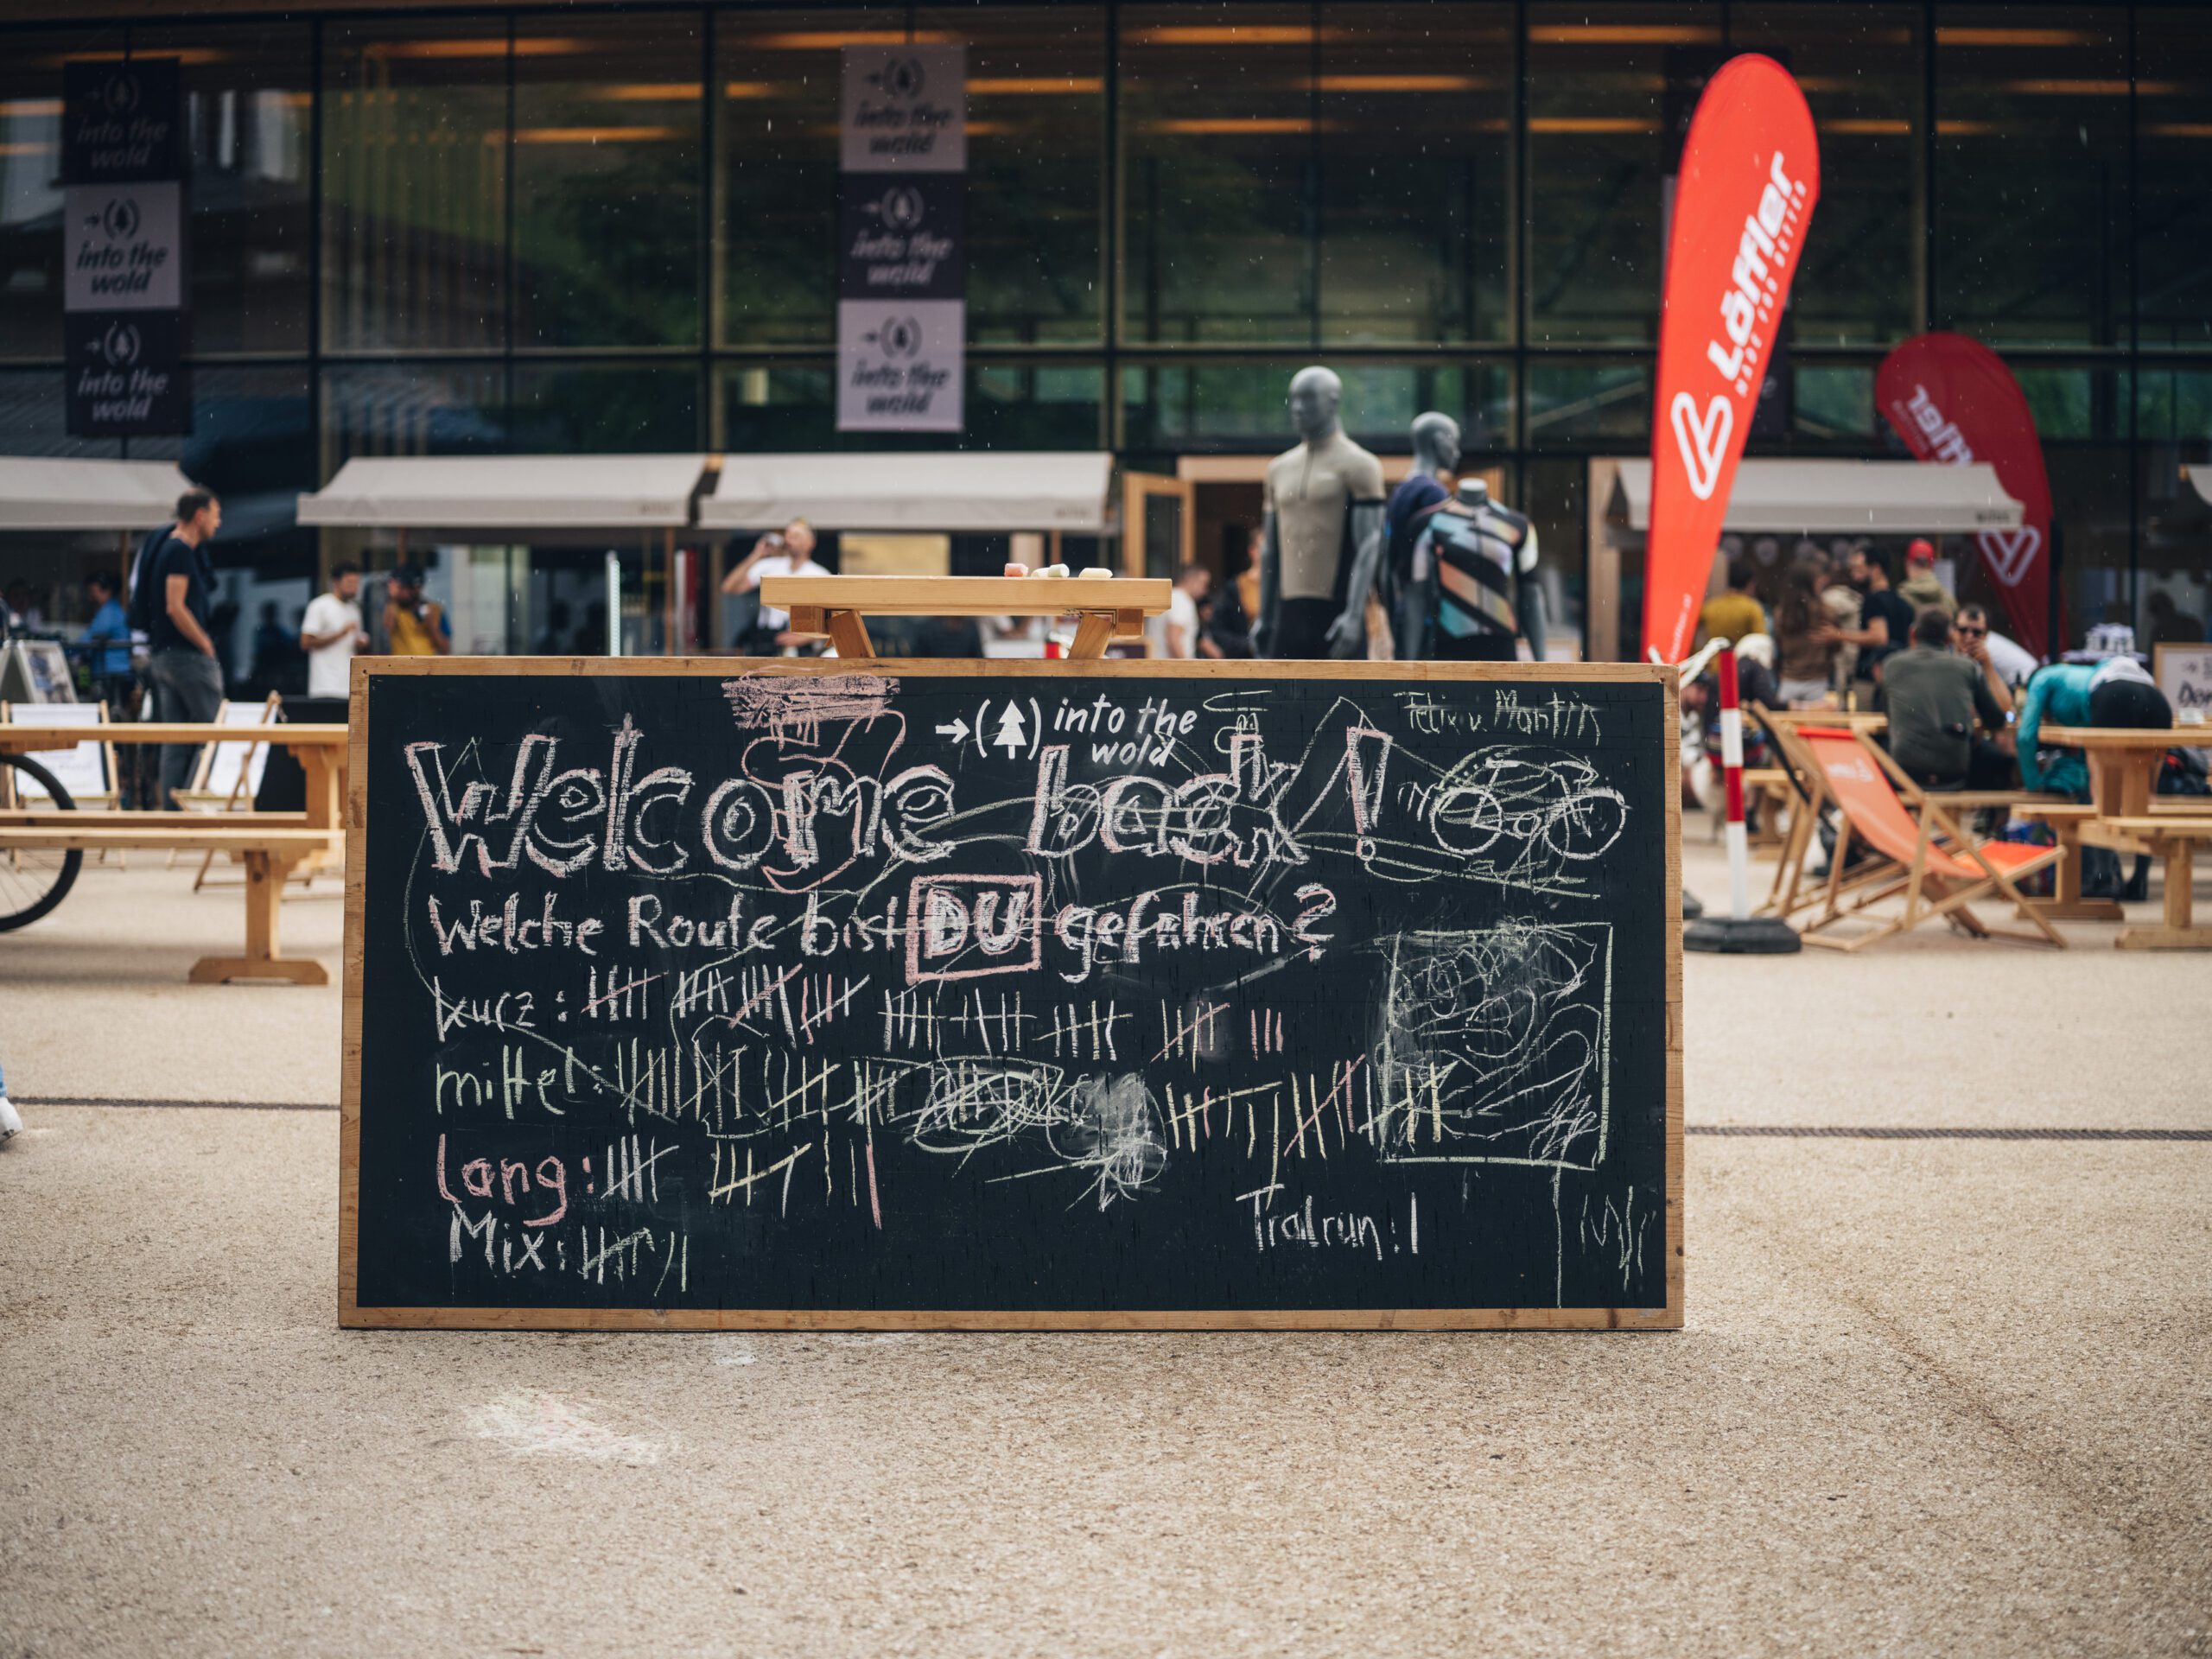 into the wold
into the wold
into the wold
into the wold
into the wold
into the wold
Löffler
MADE FOR BETTER
Löffler
into the
wold
Felix v. Martin
Welcome back!
Welche Route bist DU gefahren?
kurz:
mittel:
lang:
Mix:
Tralrun: